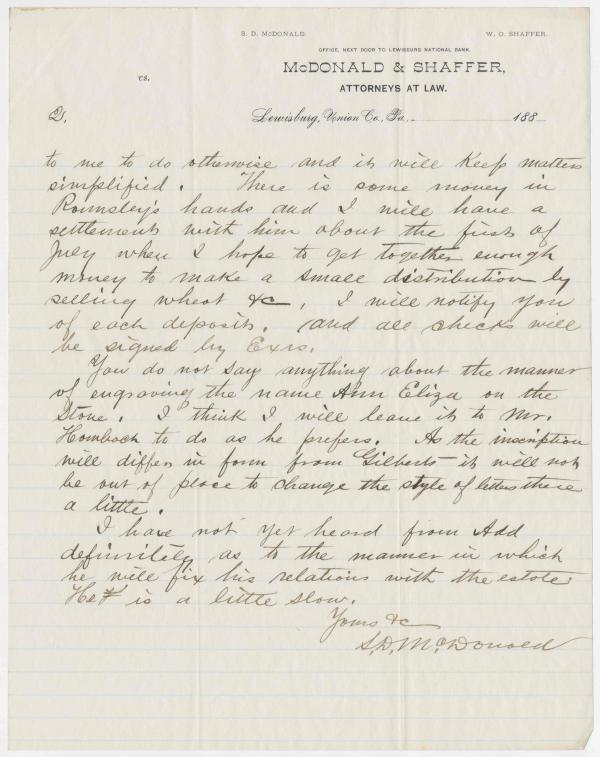 S. D. McDONALD. W. O. SHAFFER.
OFFICE, NEXT DOOR TO LEWISBURG NATIONAL BANK.
McDONALD & SHAFFER,
ATTORNEYS AT LAW.
vs.
2, Lewisburg, Union Co., Pa., 188
to me to do otherwise and it will Keep matters
simplified. There is some money in
hands and I will have a
settlement with him about the first of
July when I hope to get together enough
money to make a small distribution by
selling wheat &c, I will notify you
of each deposit, and all checks will
be signed by Exrs.
You do not say anything about the manner
of engraving the name Ann Eliza on the
Stone. I think I will leave it to Mr.
to do as he prefers. As the inscription
will differ in form from Gilberts it will not
be out of place to change the style of letters there
a little.
I have not yet heard from Add
definitely as to the manner in which
he will fix his relations with the estate
He is a little slow.
Yours &c
S. D. McDonald